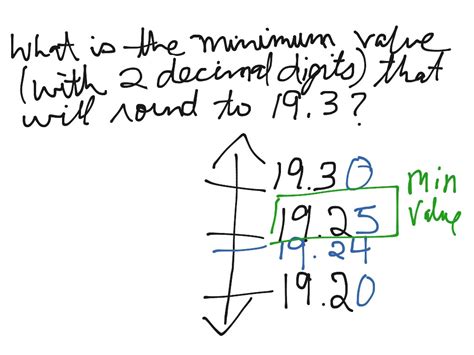 What is the minimum value
(with 2 decimal digits) that
will round to 19.3?
19.30
19.25
min
value
19.24
19.20